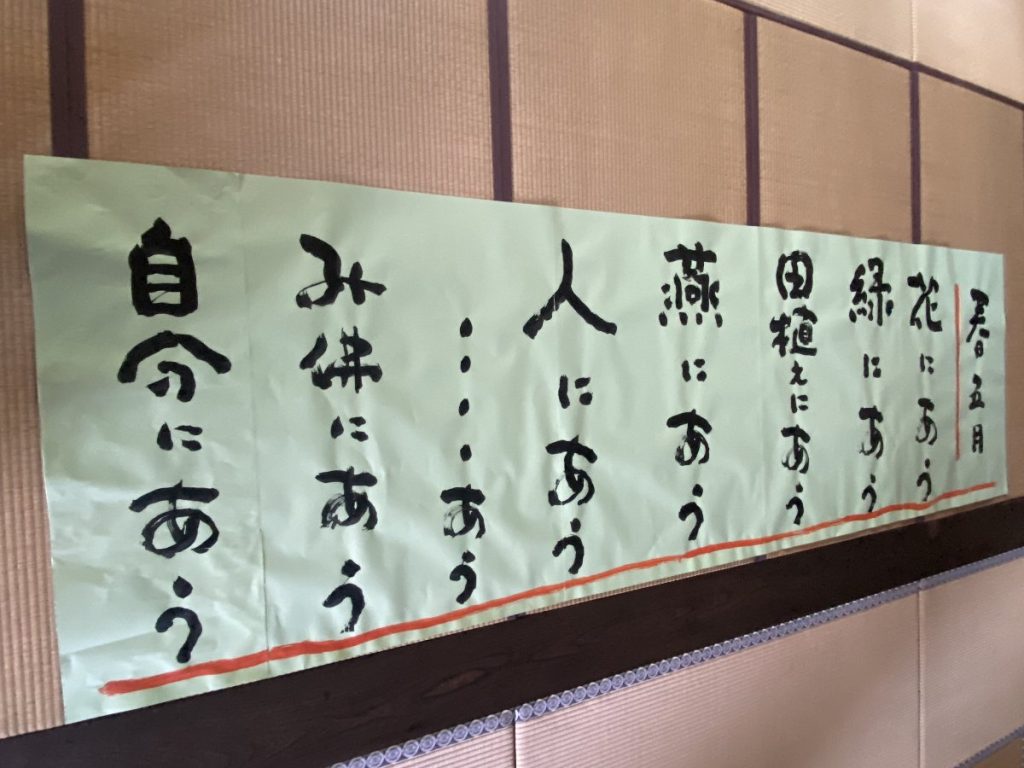 春五月
花にあう
緑にあう
田植えにあう
燕にあう
人にあう
・・・・あう
み佛にあう
自分にあう